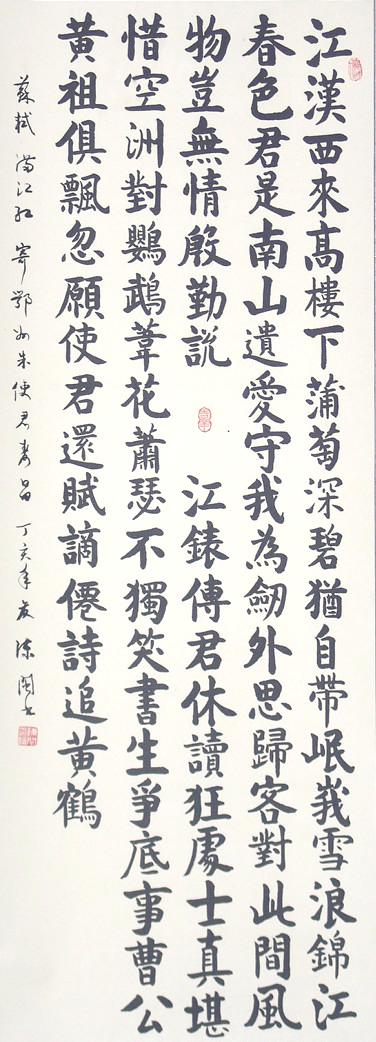 江漢西來高樓下蒲萄深碧猶自帶岷峩雪浪錦江
春色君是南山遺愛守我為劒外思歸客對此間風
物豈無情殷勤説 江錶傳君休讀狂處士真堪
惜空洲對鸚鵡葦花蕭瑟不獨笑書生爭底事曹公
黃祖俱飄忽願使君還賦謫僊詩追黃鶴
蘇軾滿江紅寄鄂州朱使君壽昌 丁亥年夏 陳